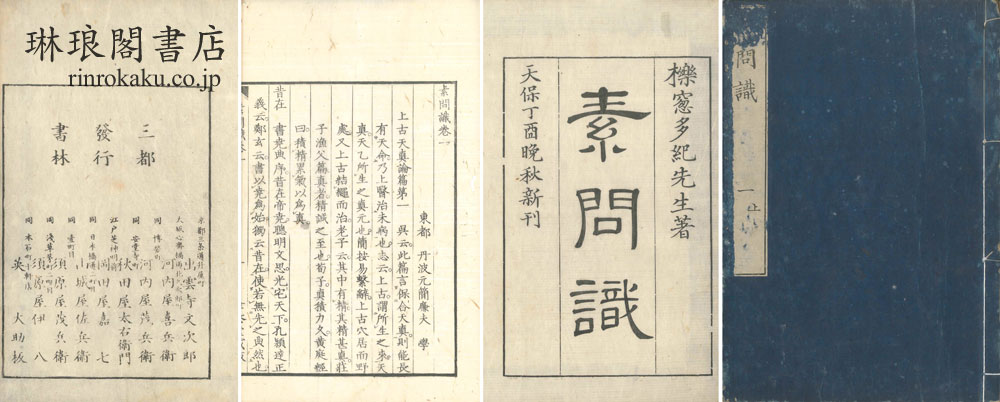 琳琅閣書店
rinrokaku.co.jp
三都
發行
書林
出雲寺文次郎
河内屋喜兵衛
同 博労町 河内屋茂兵衛
同 安堂寺町 秋田屋太右衛門
江戸芝神明前 岡田屋嘉七
山城屋佐兵衛
同 壹町目 須原屋茂兵衛
須原屋伊八
英大助板
素問識卷一
東都 丹波元簡廉夫 學
上古天真論篇第一 呉云此篇言保合天真則能長
有天命乃上醫治未病也志云上古謂所生之來天
真天乙所生之真元也簡按易繫辭上古穴居而野
處又上古結繩而治老子云其中有精其精甚真莊
子漁父篇真者精誠之至也荀子真積力久黄庭經
曰積精累氣以為真
昔在 書堯典序昔在帝堯聰明文思光宅天下孔頴達正
義云鄭玄云書以堯為始獨云昔在使若無先之典然也
櫟窻多紀先生著
素問識
天保丁酉晩秋新刊
問識 一